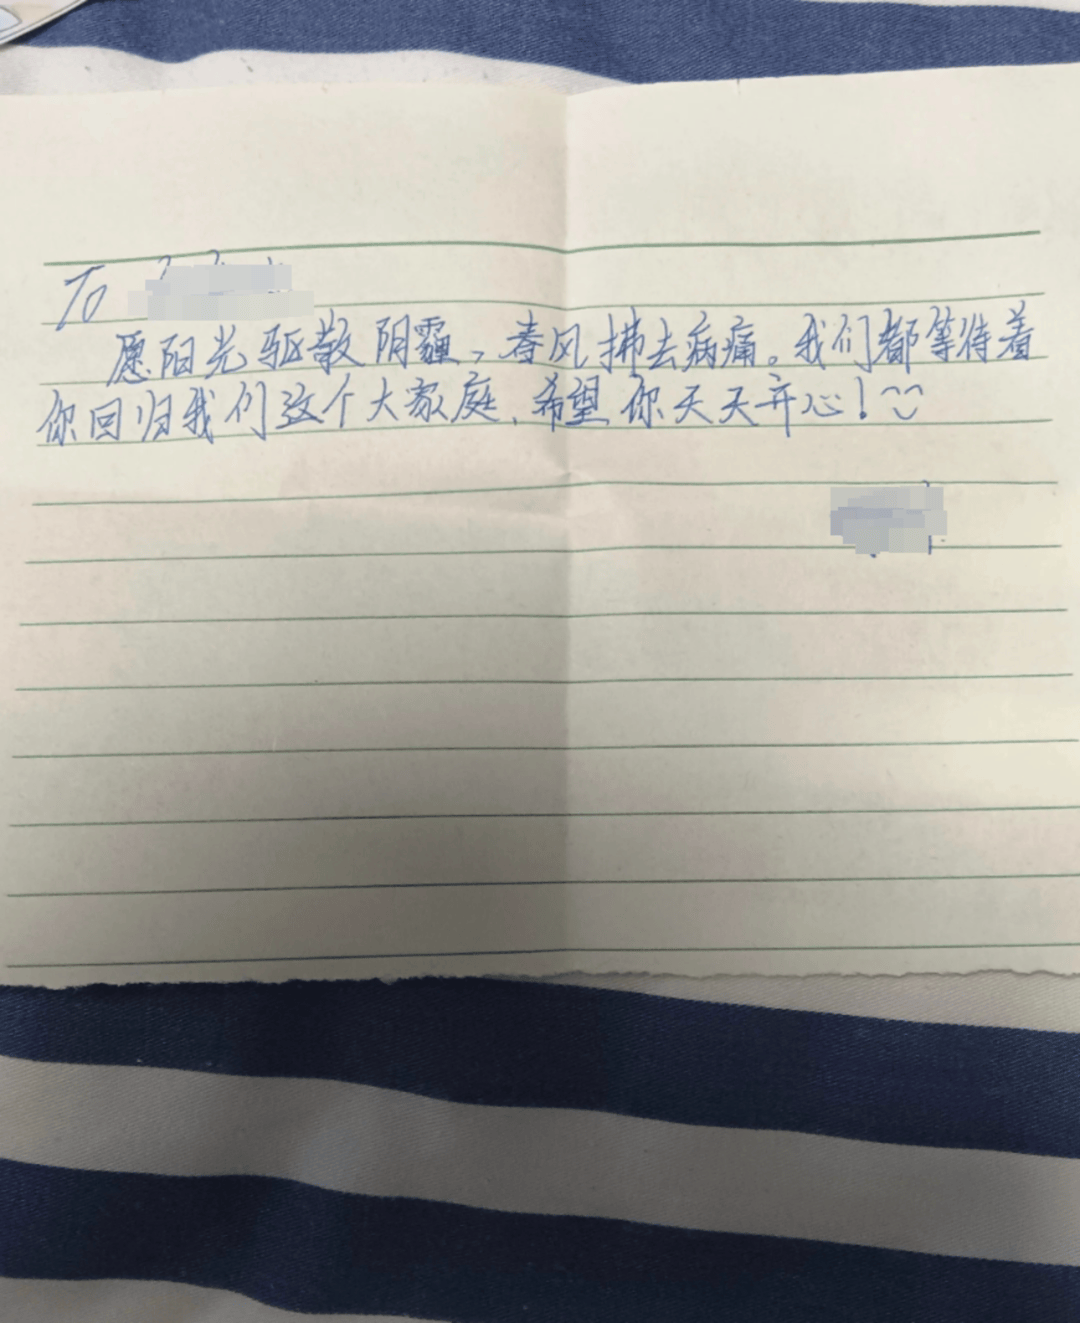 To
愿阳光驱散阴霾，春风拂去病痛。我们都等待着
你回归我们这个大家庭，希望你天天开心！